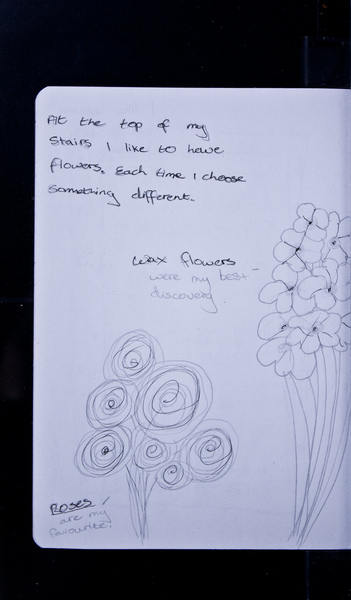 At the top of my
stairs I like to have
flowers. Each time I choose
something different.
wax flowers
were my best
discovery
Roses /
are my
favourite!